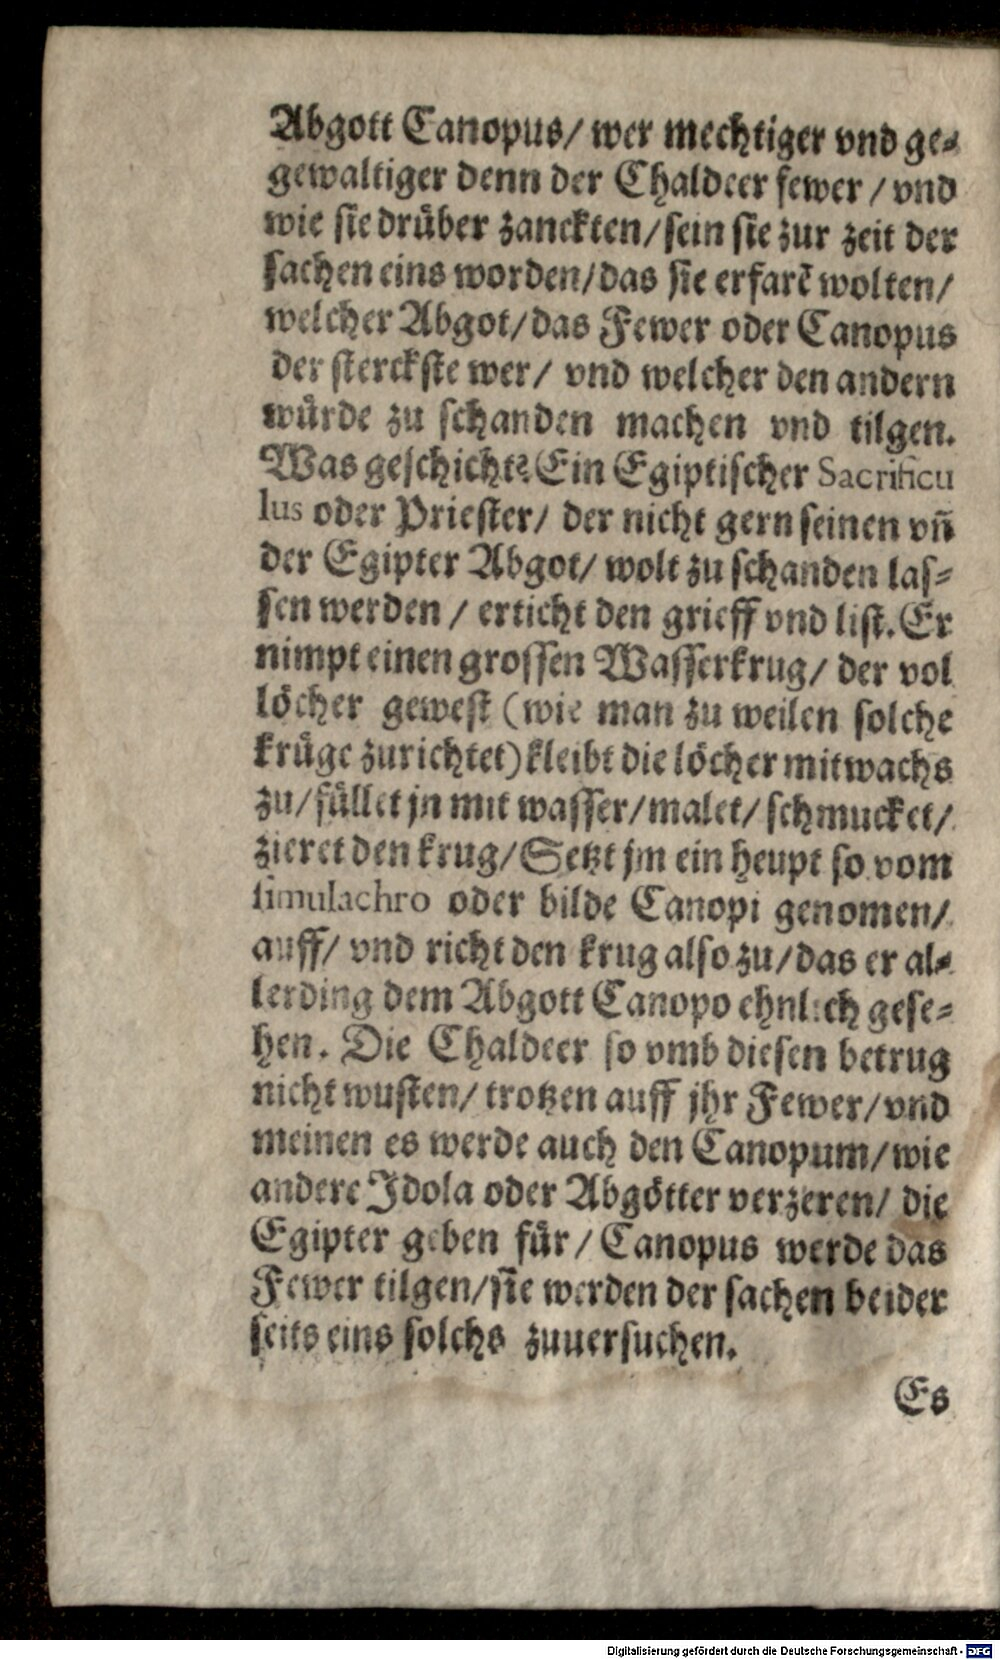 Abgott Canopus/ wer mechtiger vnd ge⸗
gewaltiger denn der Chaldeer fewer / vnd
wie sie drüber zanckten/sein sie zur zeit der
sachen eins worden/das sie erfarē wolten/
welcher Abgot/das Fewer oder Canopus
der sterckste wer/ vnd welcher den andern
würde zu schanden machen vnd tilgen.
Was geschicht? Ein Egiptischer Sacrificu
lus oder Priester/ der nicht gern seinen vñ
der Egipter Abgot/ wolt zu schanden las⸗
sen werden / erticht den grieff vnd list. Er
nimpt einen grossen Wasserkrug/ der vol
löcher gewest (wie man zu weilen solche
krüge zurichtet) kleibt die löcher mit wachs
zu/füllet jn mit wasser/malet/schmucket/
zieret den krug/Setzt jm ein heupt so vom
simulachro oder bilde Canopi genomen/
auff/ vnd richt den krug also zu/das er al⸗
lerding dem Abgott Canopo ehnlich gese⸗
hen. Die Chaldeer so vmb diesen betrug
nicht wusten/ trotzen auff jhr Fewer/vnd
meinen es werde auch den Canopum/wie
andere Idola oder Abgötter verzeren/ die
Egipter geben für / Canopus werde das
Fewer tilgen/sie werden der sachen beider
seits eins solchs zuuersuchen.
Es
Digitalisierung gefördert durch die Deutsche Forschungsgemeinschaft - DFG